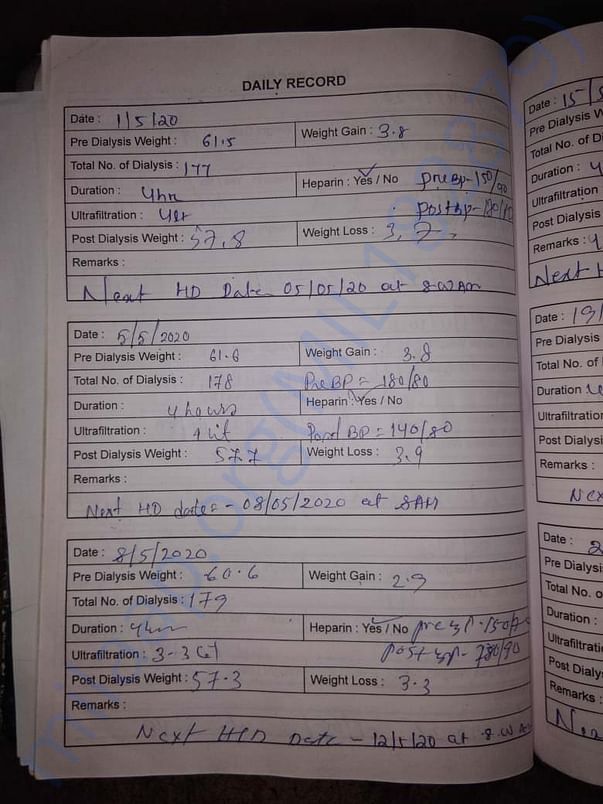 DAILY RECORD
Date : 1/5/20
Pre Dialysis Weight : 61.5 Weight Gain : 3.8
Total No. of Dialysis : 177
Duration : 4hr Heparin : Yes / No PreBp-150/90
Ultrafiltration : PostBp-
Post Dialysis Weight : 57.8 Weight Loss : 3.7
Remarks :
Next HD Date 05/05/20 at
Date : 5/5/2020
Pre Dialysis Weight : 61.6 Weight Gain : 3.8
Total No. of Dialysis : 178 PreBP = 180/80
Duration : 4 hours Heparin : Yes / No
Ultrafiltration : 4 lit Post BP = 140/80
Post Dialysis Weight : 57.7 Weight Loss : 3.9
Remarks :
Next HD date = - 08/05/2020 at 8AM
Date : 8/5/2020
Pre Dialysis Weight : 60.6 Weight Gain : 2.9
Total No. of Dialysis : 179
Duration : 4hr Heparin : Yes / No
Ultrafiltration :
Post Dialysis Weight : 57.3 Weight Loss : 3.3
Remarks :
Next HD Date - 12/5/20 at
Date : 15/5
Pre Dialysis W
Total No. of
Duration : 4
Ultrafiltration
Post Dialysis
Remarks :
Next H
Date : 19/
Pre Dialysis
Total No. of
Duration
Ultrafiltration
Post Dialysis
Remarks :
Nex
Date : 2
Pre Dialysis
Total No. o
Duration :
Ultrafiltrati
Post Dialy
Remarks :